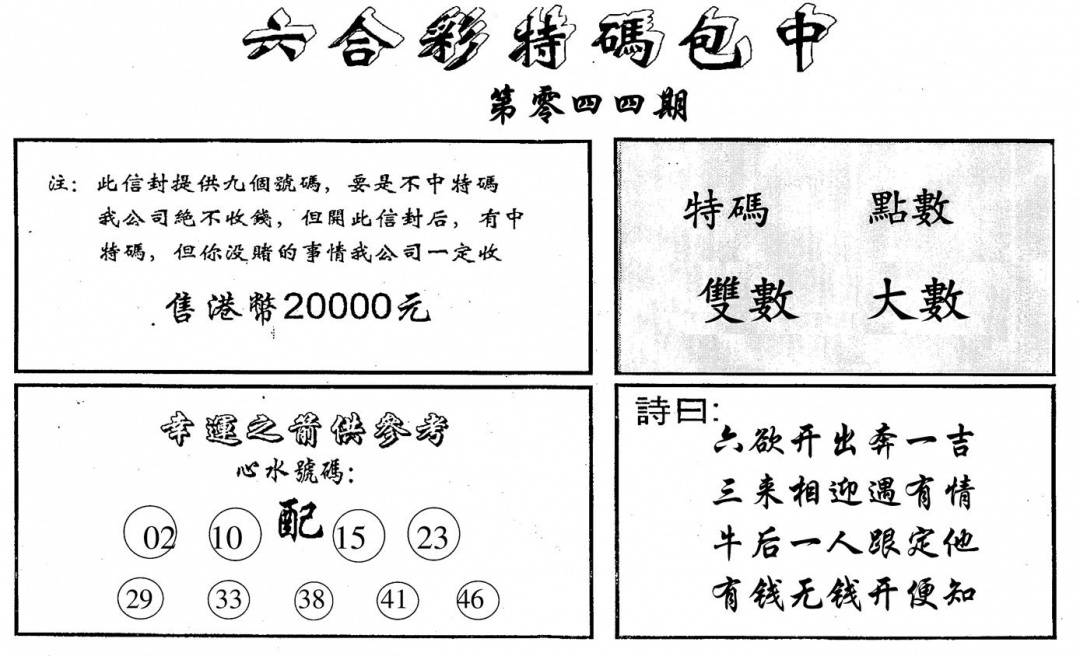 六合彩特碼包中
第零四四期
注：此信封提供九個號碼，要是不中特碼
我公司絕不收錢，但開此信封后，有中
特碼，但你没賭的事情我公司一定收
售港幣20000元
特碼 點數
雙數 大數
幸運之箭供參考
心水號碼：
配
02 10 15 23
29 33 38 41 46
詩曰：
六欲开出奔一吉
三来相迎遇有情
牛后一人跟定他
有钱无钱开便知